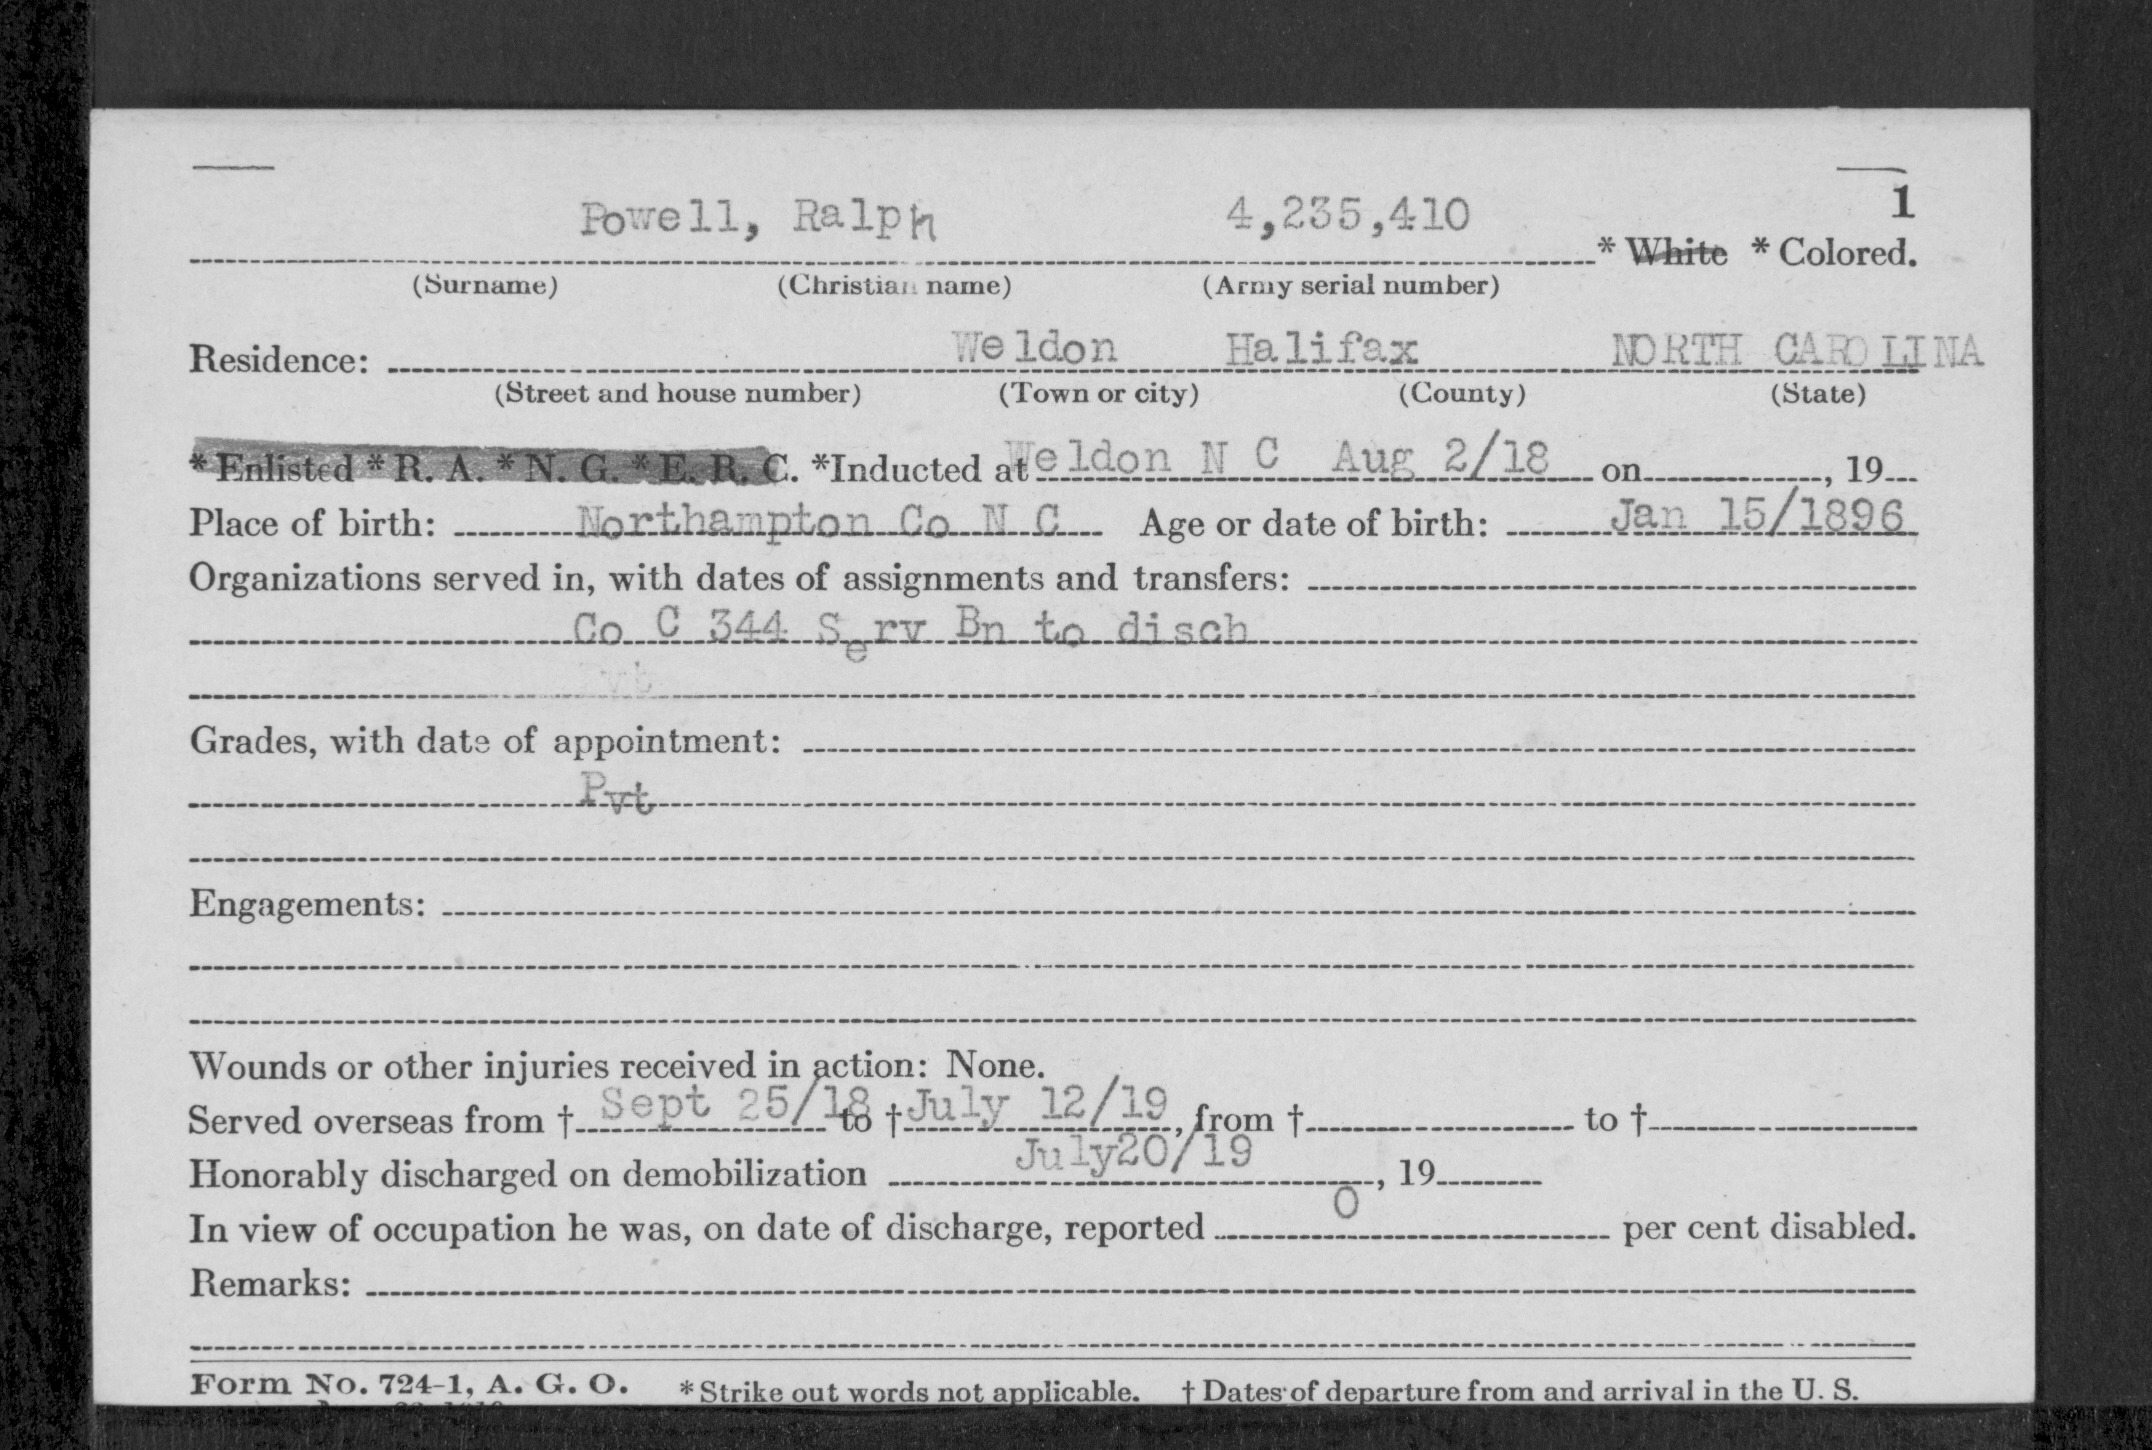 1
Powell, Ralph 4,235,410 * White * Colored.
(Surname) (Christian name) (Army serial number)
Residence: Weldon Halifax NORTH CAROLINA
(Street and house number) (Town or city) (County) (State)
* Enlisted * R. A. * N. G. * E. R. C. *Inducted at Weldon N C Aug 2/18 on , 19
Place of birth: Northampton Co N C Age or date of birth: Jan 15/1896
Organizations served in, with dates of assignments and transfers:
Co C 344 Serv Bn to disch
vt
Grades, with date of appointment:
Pvt
Engagements:
Wounds or other injuries received in action: None.
Served overseas from † Sept 25/18 to † July 12/19, from † to †
Honorably discharged on demobilization July20/19, 19
In view of occupation he was, on date of discharge, reported 0 per cent disabled.
Remarks:
Form No. 724-1, A. G. O. * Strike out words not applicable. † Dates of departure from and arrival in the U. S.